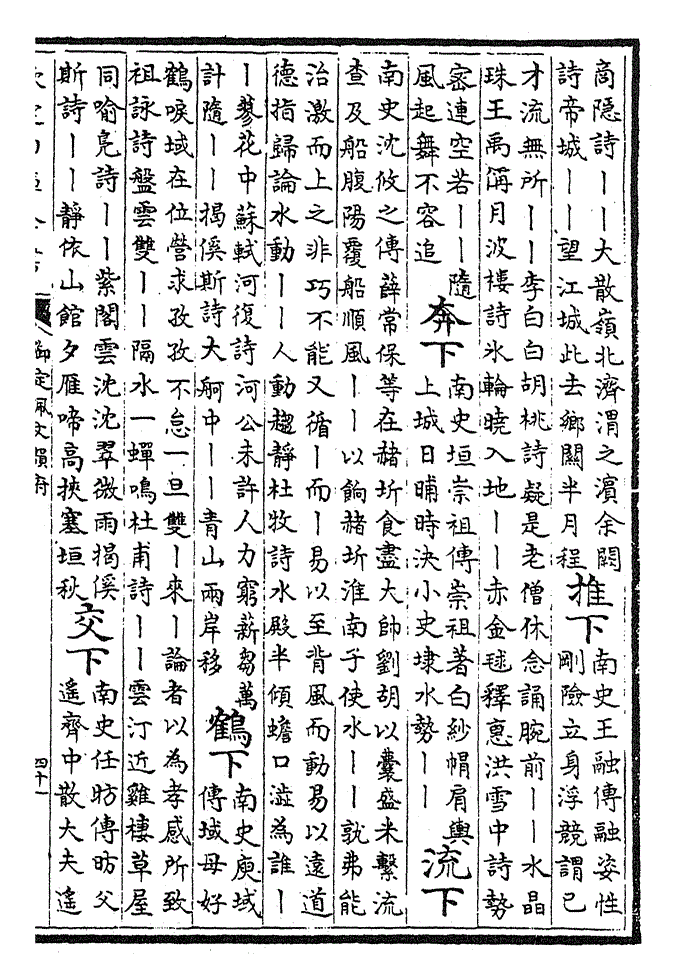 商隱詩丨丨大散嶺北濟渭之濱余闕
詩帝城丨丨望江城此去鄉關半月程
推下
南史王融傳融姿性
剛險立身浮競謂已
才流無所丨丨李白白胡桃詩疑是老僧休念誦腕前丨丨水晶
珠王禹偁月波樓詩氷輪曉入地丨丨赤金毬釋惠洪雪中詩勢
密連空若丨丨隨
風起舞不容追
奔下
南史垣崇祖傳崇祖著白紗帽肩輿
上城日晡時決小史埭水勢丨丨
流下
南史沈攸之傳薛常保等在赭圻食盡大帥劉胡以囊盛米繫流
查及船腹陽覆船順風丨丨以餉赭圻淮南子使水丨丨孰弗能
治激而上之非巧不能又循丨而丨易以至背風而動易以遠道
德指歸論水動丨丨人動趨靜杜牧詩水殿半傾蟾口澁為誰丨
丨蓼花中蘇軾河復詩河公未許人力窮薪芻萬
計隨丨丨揭傒斯詩大舸中丨丨青山兩岸移
鶴下
南史庾域
傳域母好
鶴唳域在位營求孜孜不怠一旦雙丨來丨論者以為孝感所致
祖詠詩盤雲雙丨丨隔水一蟬鳴杜甫詩丨丨雲汀近雞棲草屋
同喻鳧詩丨丨紫閣雲沈沈翠微雨揭傒
斯詩丨丨靜依山館夕雁啼高挾塞垣秋
交下
南史任昉傳昉父
遙齊中散大夫遙
御定佩文韻府
四十一